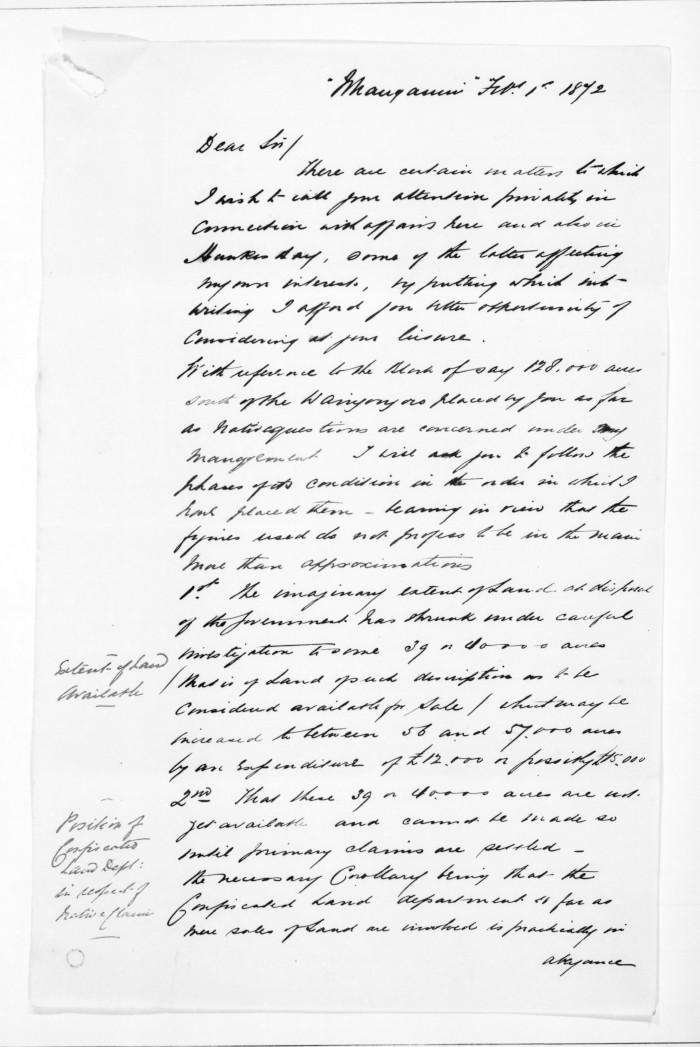 "Whanganui" Feby. 1st 1872
Dear Sir/
There are certain matters to which
I wish to call your attention privately in
connection with affairs here and also in
Hawkes Bay, some of the latter affecting
my own interests, by putting which into
writing I afford you better opportunity of
considering at your leisure.
With reference to the Block of say 128.000 acres
south of the Waingongoro placed by you as far
as Native questions are concerned under my
management I will ask you to follow the
phases of its condition in the order in which I
have placed them - bearing in view that the
figures used do not profess to be in the main
more than approximations
1st. The imaginary extent of Land at disposal
of the Government has shrunk under careful
investigation to some 39 or 40000 acres
/ that is of Land of such description as to be
considered available for Sale / which may be
increased to between 56 and 57.000 acres
by an Expenditure of £12.000 or possibly £15.000
2nd That these 39 or 40.000 acres are not
yet available and cannot be made so
until primary claims are settled -
the necessary Corollary being that the
Confiscated Land department as far as
mere sales of Land are involved is practically in
abeyance
Extent of Land
Available
Position of
Confiscated
Land Dept:
in respect of
Native Claims